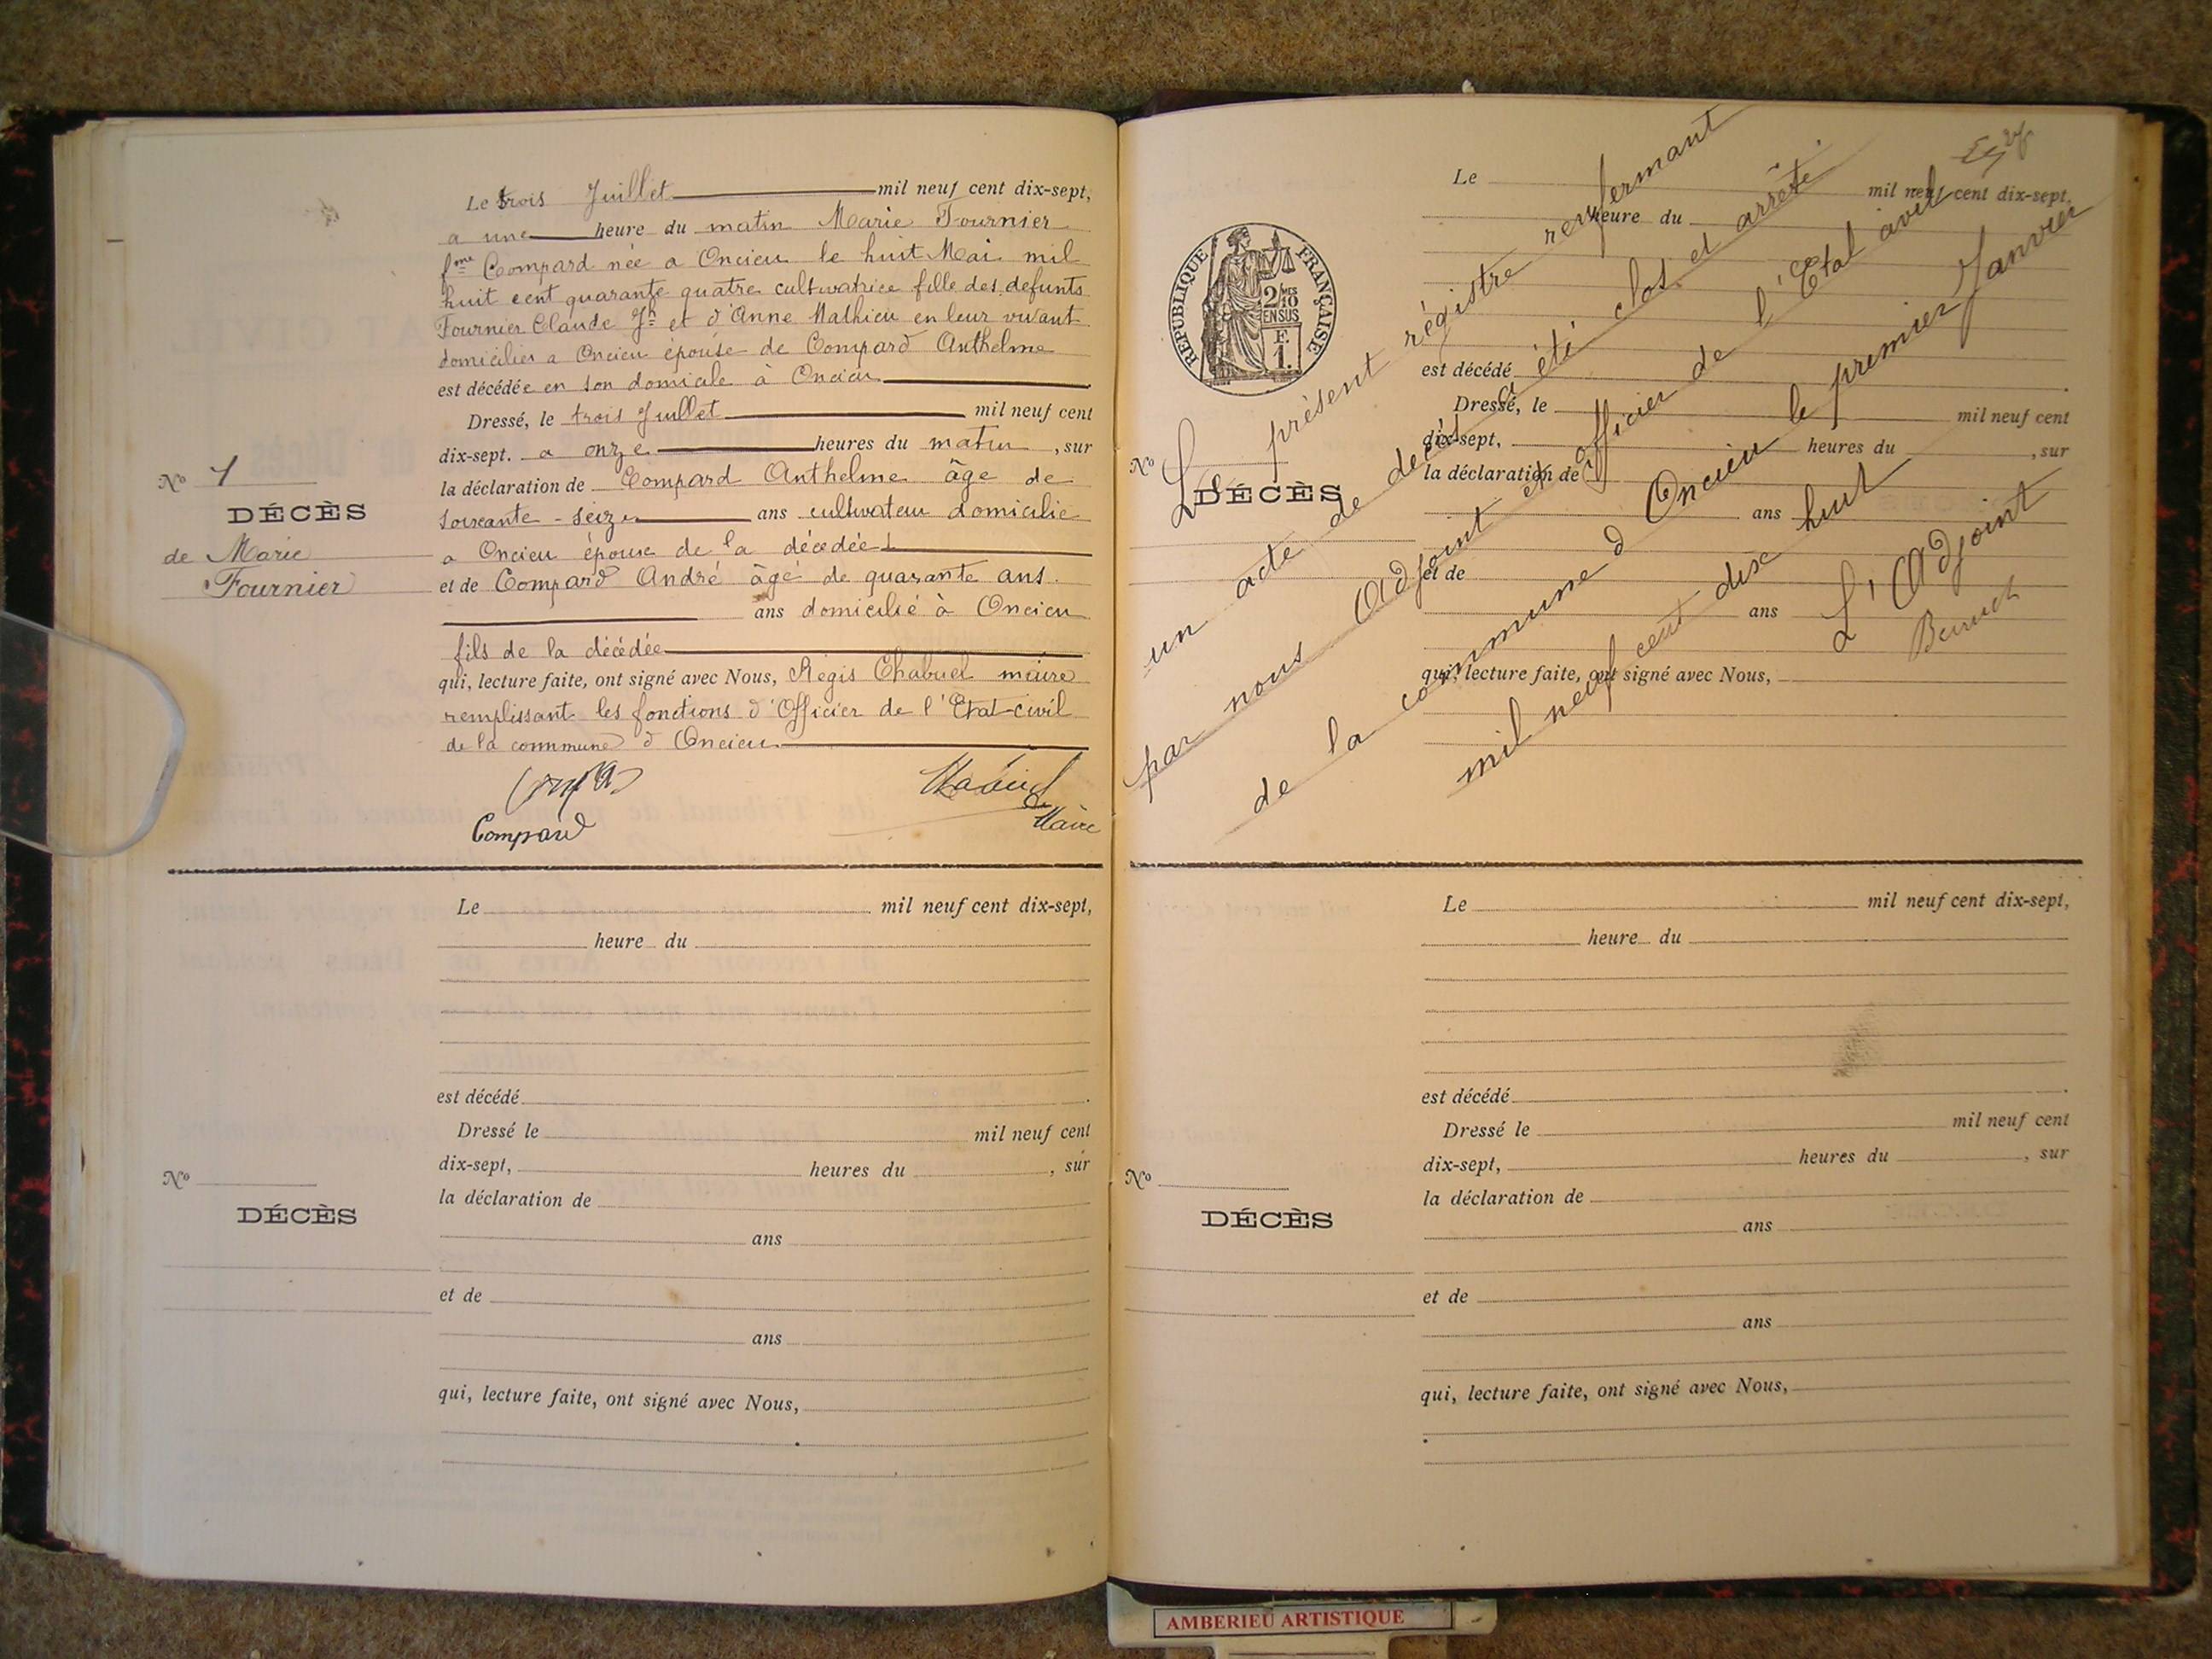 Le trois Juillet mil neuf cent dix-sept,
a une heure du matin Marie Fournier
fme Compard née a Oncieu le huit Mai mil
huit cent quarante quatre cultivatrice fille des defunts
Fournier Claude Jh et d'Anne Mathieu en leur vivant
domiciliés a Oncieu épouse de Compard Anthelme
est décédée en son domicile à Oncieu
Dressé, le trois Juillet mil neuf cent
dix-sept. a onze heures du matin, sur
la déclaration de Compard Anthelme âge de
soixante-seize ans cultivateur domicilié
a Oncieu épouse de la décédée
et de Compard André âgé de quarante ans
ans domicilié à Oncieu
fils de la décédée
qui, lecture faite, ont signé avec Nous, Régis Chabuel maire
remplissant les fonctions d'Officier de l'Etat-civil
de la commune d'Oncieu
Compard
Maire
No 1
DÉCÈS
de Marie
Fournier
Le mil neuf cent dix-sept,
heure du
est décédé
Dressé le mil neuf cent
dix-sept, heures du , sur
la déclaration de
ans
et de
ans
qui, lecture faite, ont signé avec Nous,
No
DÉCÈS
RÉPUBLIQUE FRANÇAISE
2/10
EN SUS
F.
1.
Le mil neuf cent dix-sept,
heure du
est décédé
Dressé, le mil neuf cent
dix-sept, heures du , sur
la déclaration de
ans
et de
ans
qui, lecture faite, ont signé avec Nous,
No
DÉCÈS
Le présent régistre renfermant
un acte de décès a été clos et arrêté
par nous Adjoint et officier de l'Etat civil
de la commune d'Oncieu le premier Janvier
mil neuf cent dix huit
L'Adjoint
Le mil neuf cent dix-sept,
heure du
est décédé
Dressé le mil neuf cent
dix-sept, heures du , sur
la déclaration de
ans
et de
ans
qui, lecture faite, ont signé avec Nous,
No
DÉCÈS
AMBERIEU ARTISTIQUE